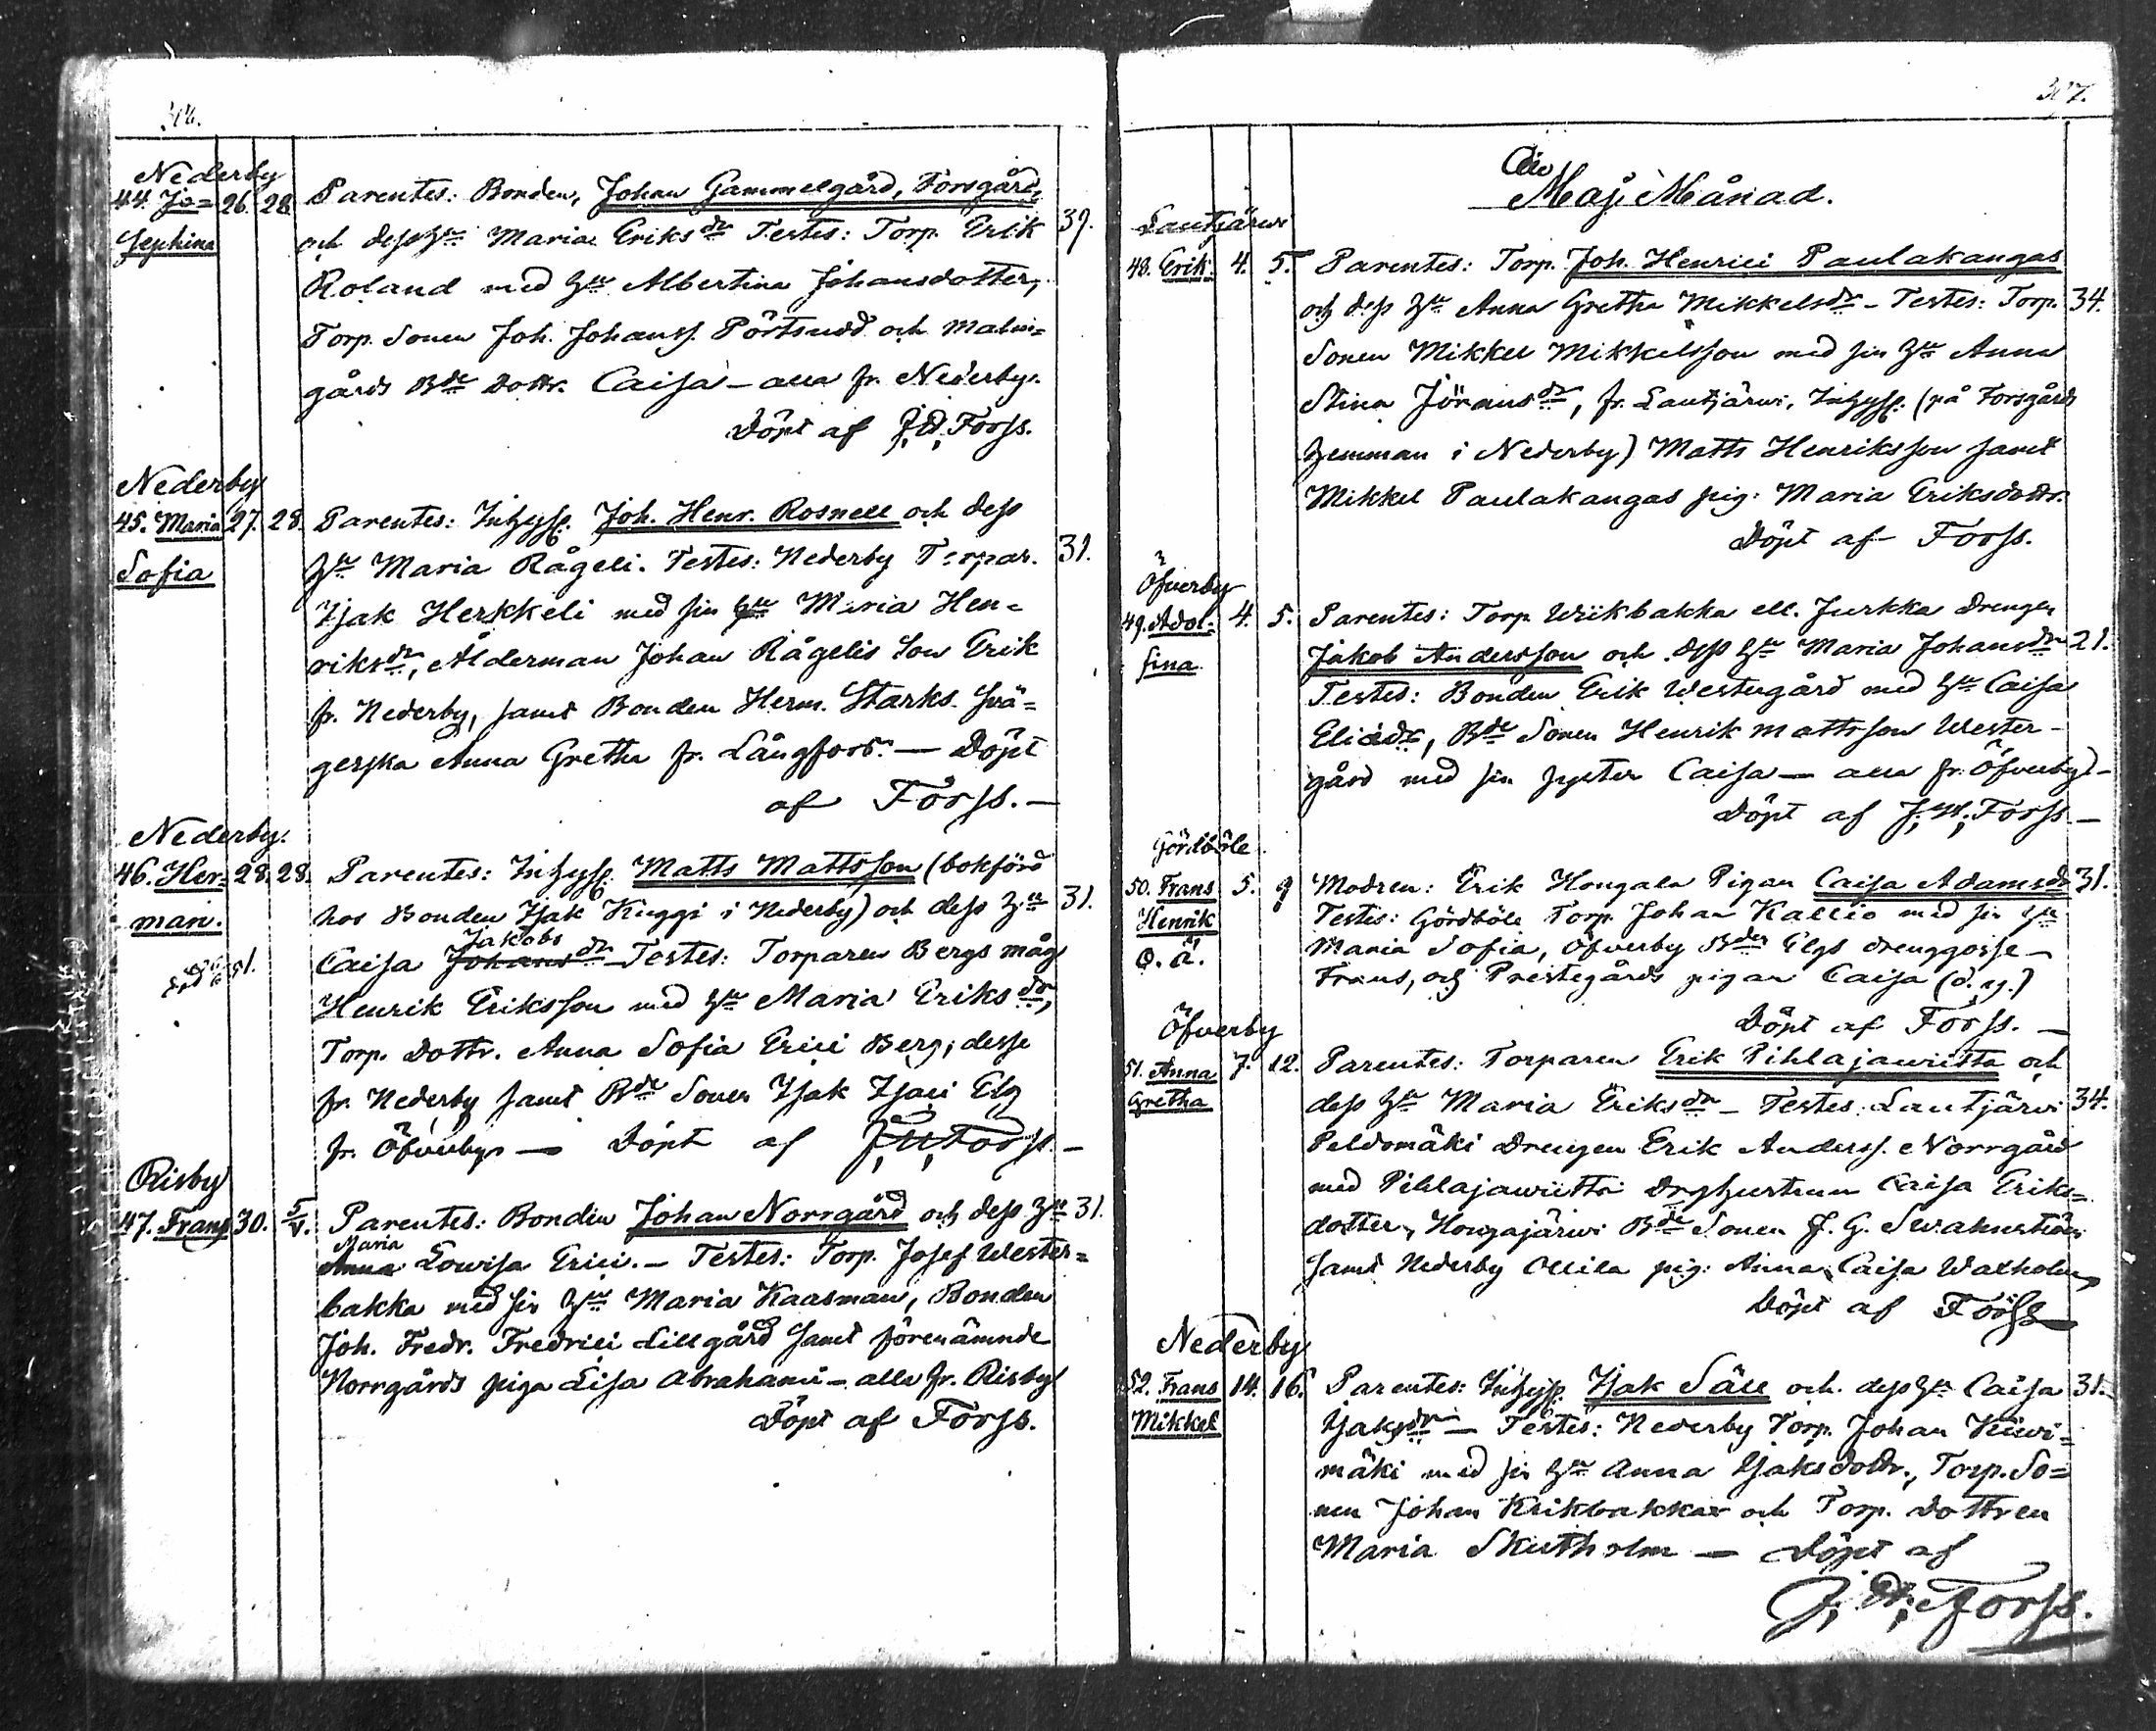 306.
Nederby
44. Jo= 26. 28. Parentes: Bonden, Johan Gammelgård, Forsgård,
sephina och dess Hu Maria Eriksdr Testes: Torp. Erik 39.
Roland med Hu Albertina Johansdotter,
Torp. Sonen Joh. Johanss. Pörtsudd och Malm=
gårds Bde Dottr. Caisa - alla fr. Nederby.
Döpt af J. W. Forss.
Nederby
45. Maria 27. 28. Parentes: Inhyss. Joh. Henr. Rosnell och dess
Sofia Hu Maria Rågeli. Testes: Nederby Torpar. 31.
Isak Herkkeli med sin Hu Maria Hen=
riksdr, Ålderman Johan Rågelis Son Erik
fr. Nederby, samt Bonden Herm. Starks Svä=
gerska Anna Gretha fr. Långfors. — Döpt
af Forss. —
Nederby.
46. Her= 28. 28. Parentes: Inhyss. Matts Mattsson (bokförd
man. hos Bonden Isak Kuggi i Nederby) och dess Hu 31.
Jakobs
Caisa Johansdr - Testes: Torparen Bergs måg
Henrik Eriksson med Hu Maria Eriksdr,
Torp. Dottr. Anna Sofia Erici Berg, desse
fr. Nederby samt Bde Sonen Isak Isaci Elg
fr. Öfverby. — Döpt af J. W. Forss. —
Risby
47. Frans 30. 5/V. Parentes: Bonden Johan Norrgård och dess Hu 31.
Maria
Anna Lovisa Erici. — Testes: Torp. Josef Wester=
backa med sin Hu Maria Kaasman, Bonden
Joh. Fredr. Fredrici Lillgård samt förenämnde
Norrgårds piga Lisa Abrahami - alla fr. Risby
Döpt af Forss.
307.
Maji Månad.
Lautjärwi
48. Erik. 4. 5. Parentes: Torp. Joh. Henrici Paulakangas
och dess Hu Anna Gretha Mikkelsdr - Testes: Torp. 34.
Sonen Mikkel Mikkelsson med sin Hu Anna
Stina Jöransdr, fr. Lautjärwi, Inhyss. (på Forsgårds
hemman i Nederby) Matts Henriksson samt
Mikkel Paulakangas pig: Maria Eriksdottr.
Döpt af Forss.
Öfverby
49. Adol= 4. 5. Parentes: Torp. Wiikbakka ell. Jurkka Drengen
fina. Jakob Andersson och dess Hu Maria Johansdr 21.
Testes: Bonden Erik Westergård med Hu Caisa
Eliædr, Bde Sonen Henrik Mattsson Wester-
gård med sin syster Caisa — alla fr. Öfverby. —
Döpt af J. W. Forss. —
Gördböle.
50. Frans 5. 9 Modren: Erik Hongala Pigan Caisa Adamsdr 31.
Henrik Testes: Gördböle Torp. Johan Kallio med sin Hu
O. ä. Maria Sofia, Öfverby Bden Elgs drenggosse —
Frans, och Prestegårds pigan Caisa (o. g.)
Döpt af Forss. —
Öfverby
51. Anna 7. 12. Parentes: Torparen Erik Pihlajawiitta och
Gretha dess Hu Maria Eriksdr — Testes: Lautjärwi 34.
Peldomäki Drengen Erik Anderss. Norrgård
med Pihlajawiitta Drghustrun Caisa Eriks=
dotter, Hongajärwi Bde Sonen J. G. Swahnström
samt Nederby Ollila pig: Anna Caisa Waxholm
Döpt af Forss
Nederby
52. Frans 14. 16. Parentes: Inhyss. Isak Säll och dess Hu Caisa 31.
Mikkel Isaksdr — Testes: Nederby Torp. Johan Kiwi=
mäki med sin Hu Anna Isaksdottr., Torp. So=
nen Johan Krikbakka och Torp. Dottren
Maria Skutholm — Döpt af
J. W. Forss.